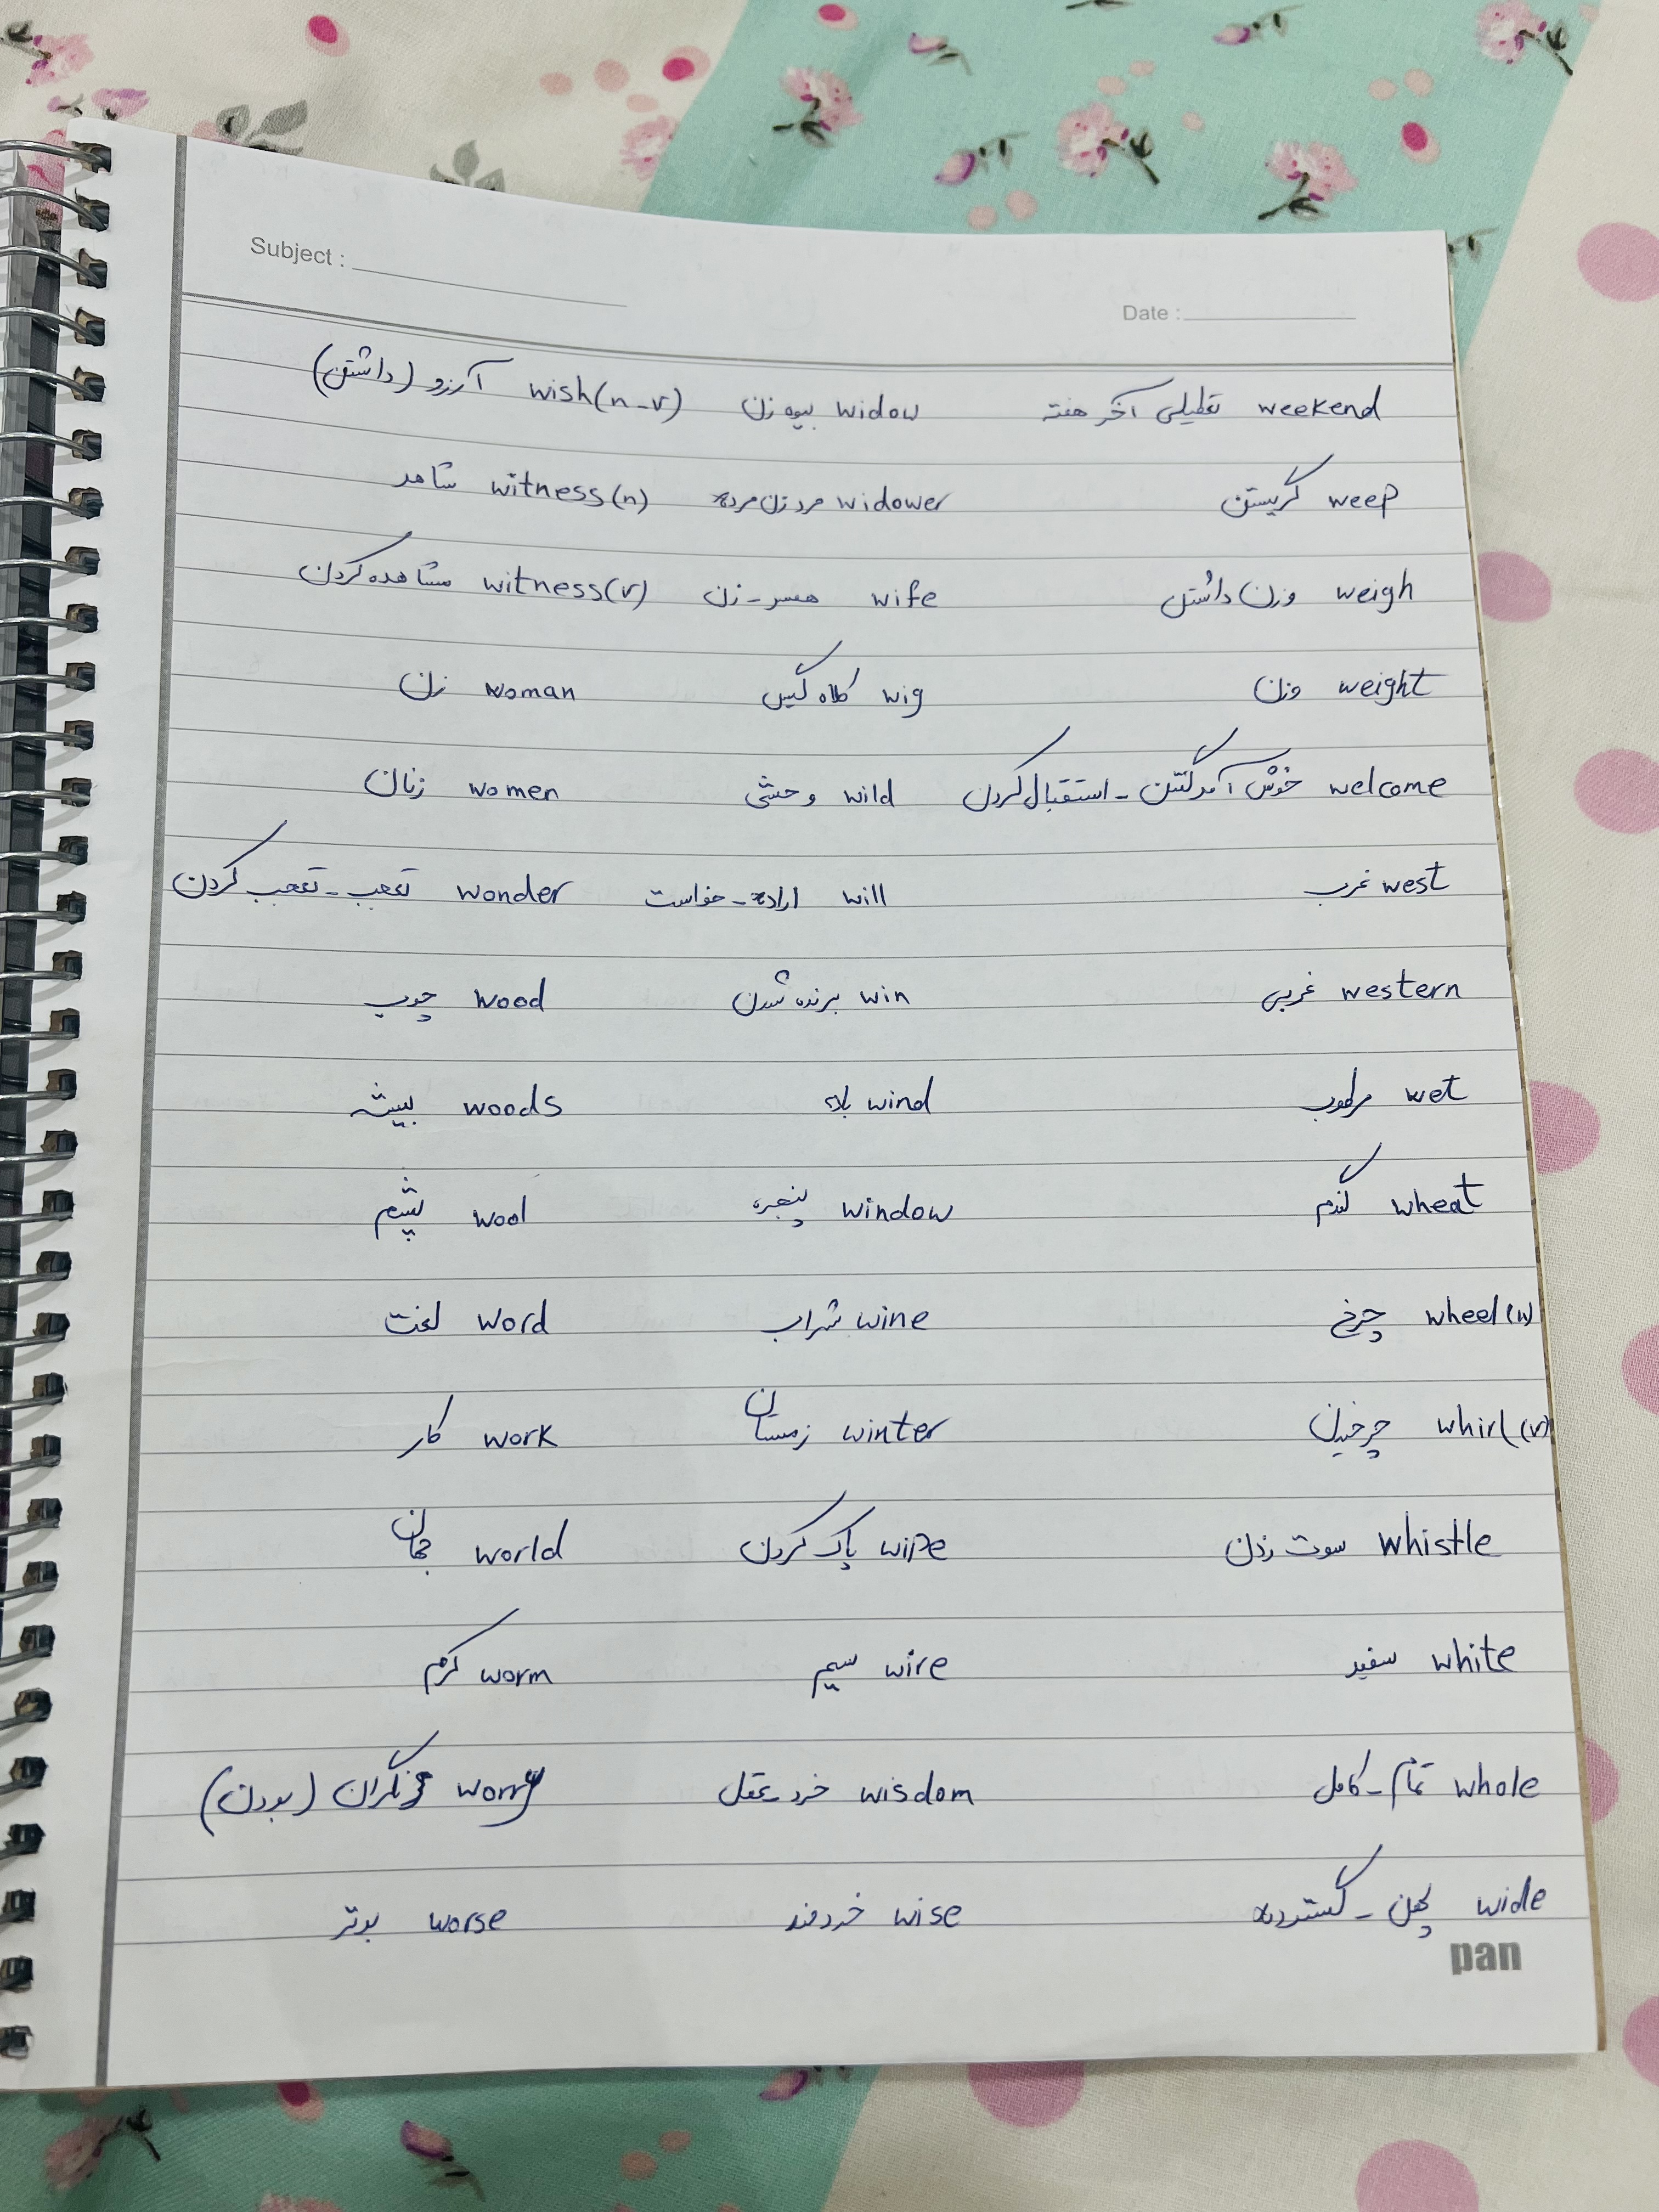 Subject :
Date :
weekend تعطیلی آخر هفته widow بیوه زن wish(n-v) آرزو (داشتن)
weep گریستن widower مرد زن مرده witness(n) شاهد
weigh وزن داشتن wife همسر - زن witness(v) مشاهده کردن
weight وزن wig کلاه گیس woman زن
welcome خوش آمد گفتن - استقبال کردن wild وحشی women زنان
west غرب will اراده - خواست wonder تعجب - تعجب کردن
western غربی win برنده شدن wood چوب
wet مرطوب wind باد woods بیشه
wheat گندم window پنجره wool پشم
wheel(n) چرخ wine شراب word لغت
whirl(v) چرخیدن winter زمستان work کار
whistle سوت زدن wipe پاک کردن world جهان
white سفید wire سیم worm کرم
whole تمام - کامل wisdom خرد - عقل worry نگران (بودن)
wide پهن - گسترده wise خردمند worse بدتر
pan